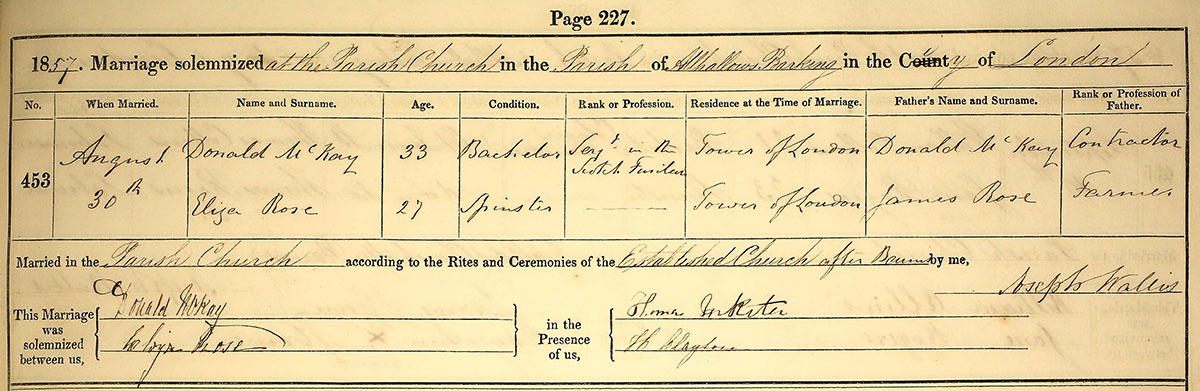 Page 227.
1857. Marriage solemnized at the Parish Church in the Parish of Allhallows Barking in the County of London
No. When Married. Name and Surname. Age. Condition. Rank or Profession. Residence at the Time of Marriage. Father's Name and Surname. Rank or Profession of Father.
453 August 30th Donald McKay 33 Bachelor Sergt in the Scotch Donald McKay Tower of London Donald McKay Contractor
Eliza Rose 27 Spinster Tower of London James Rose Farmer
Married in the Parish Church according to the Rites and Ceremonies of the Established Church after Banns by me,
Joseph Wallis
This Marriage was solemnized between us, Donald McKay
Eliza Rose
in the Presence of us, Thomas Inkster
H Clayton